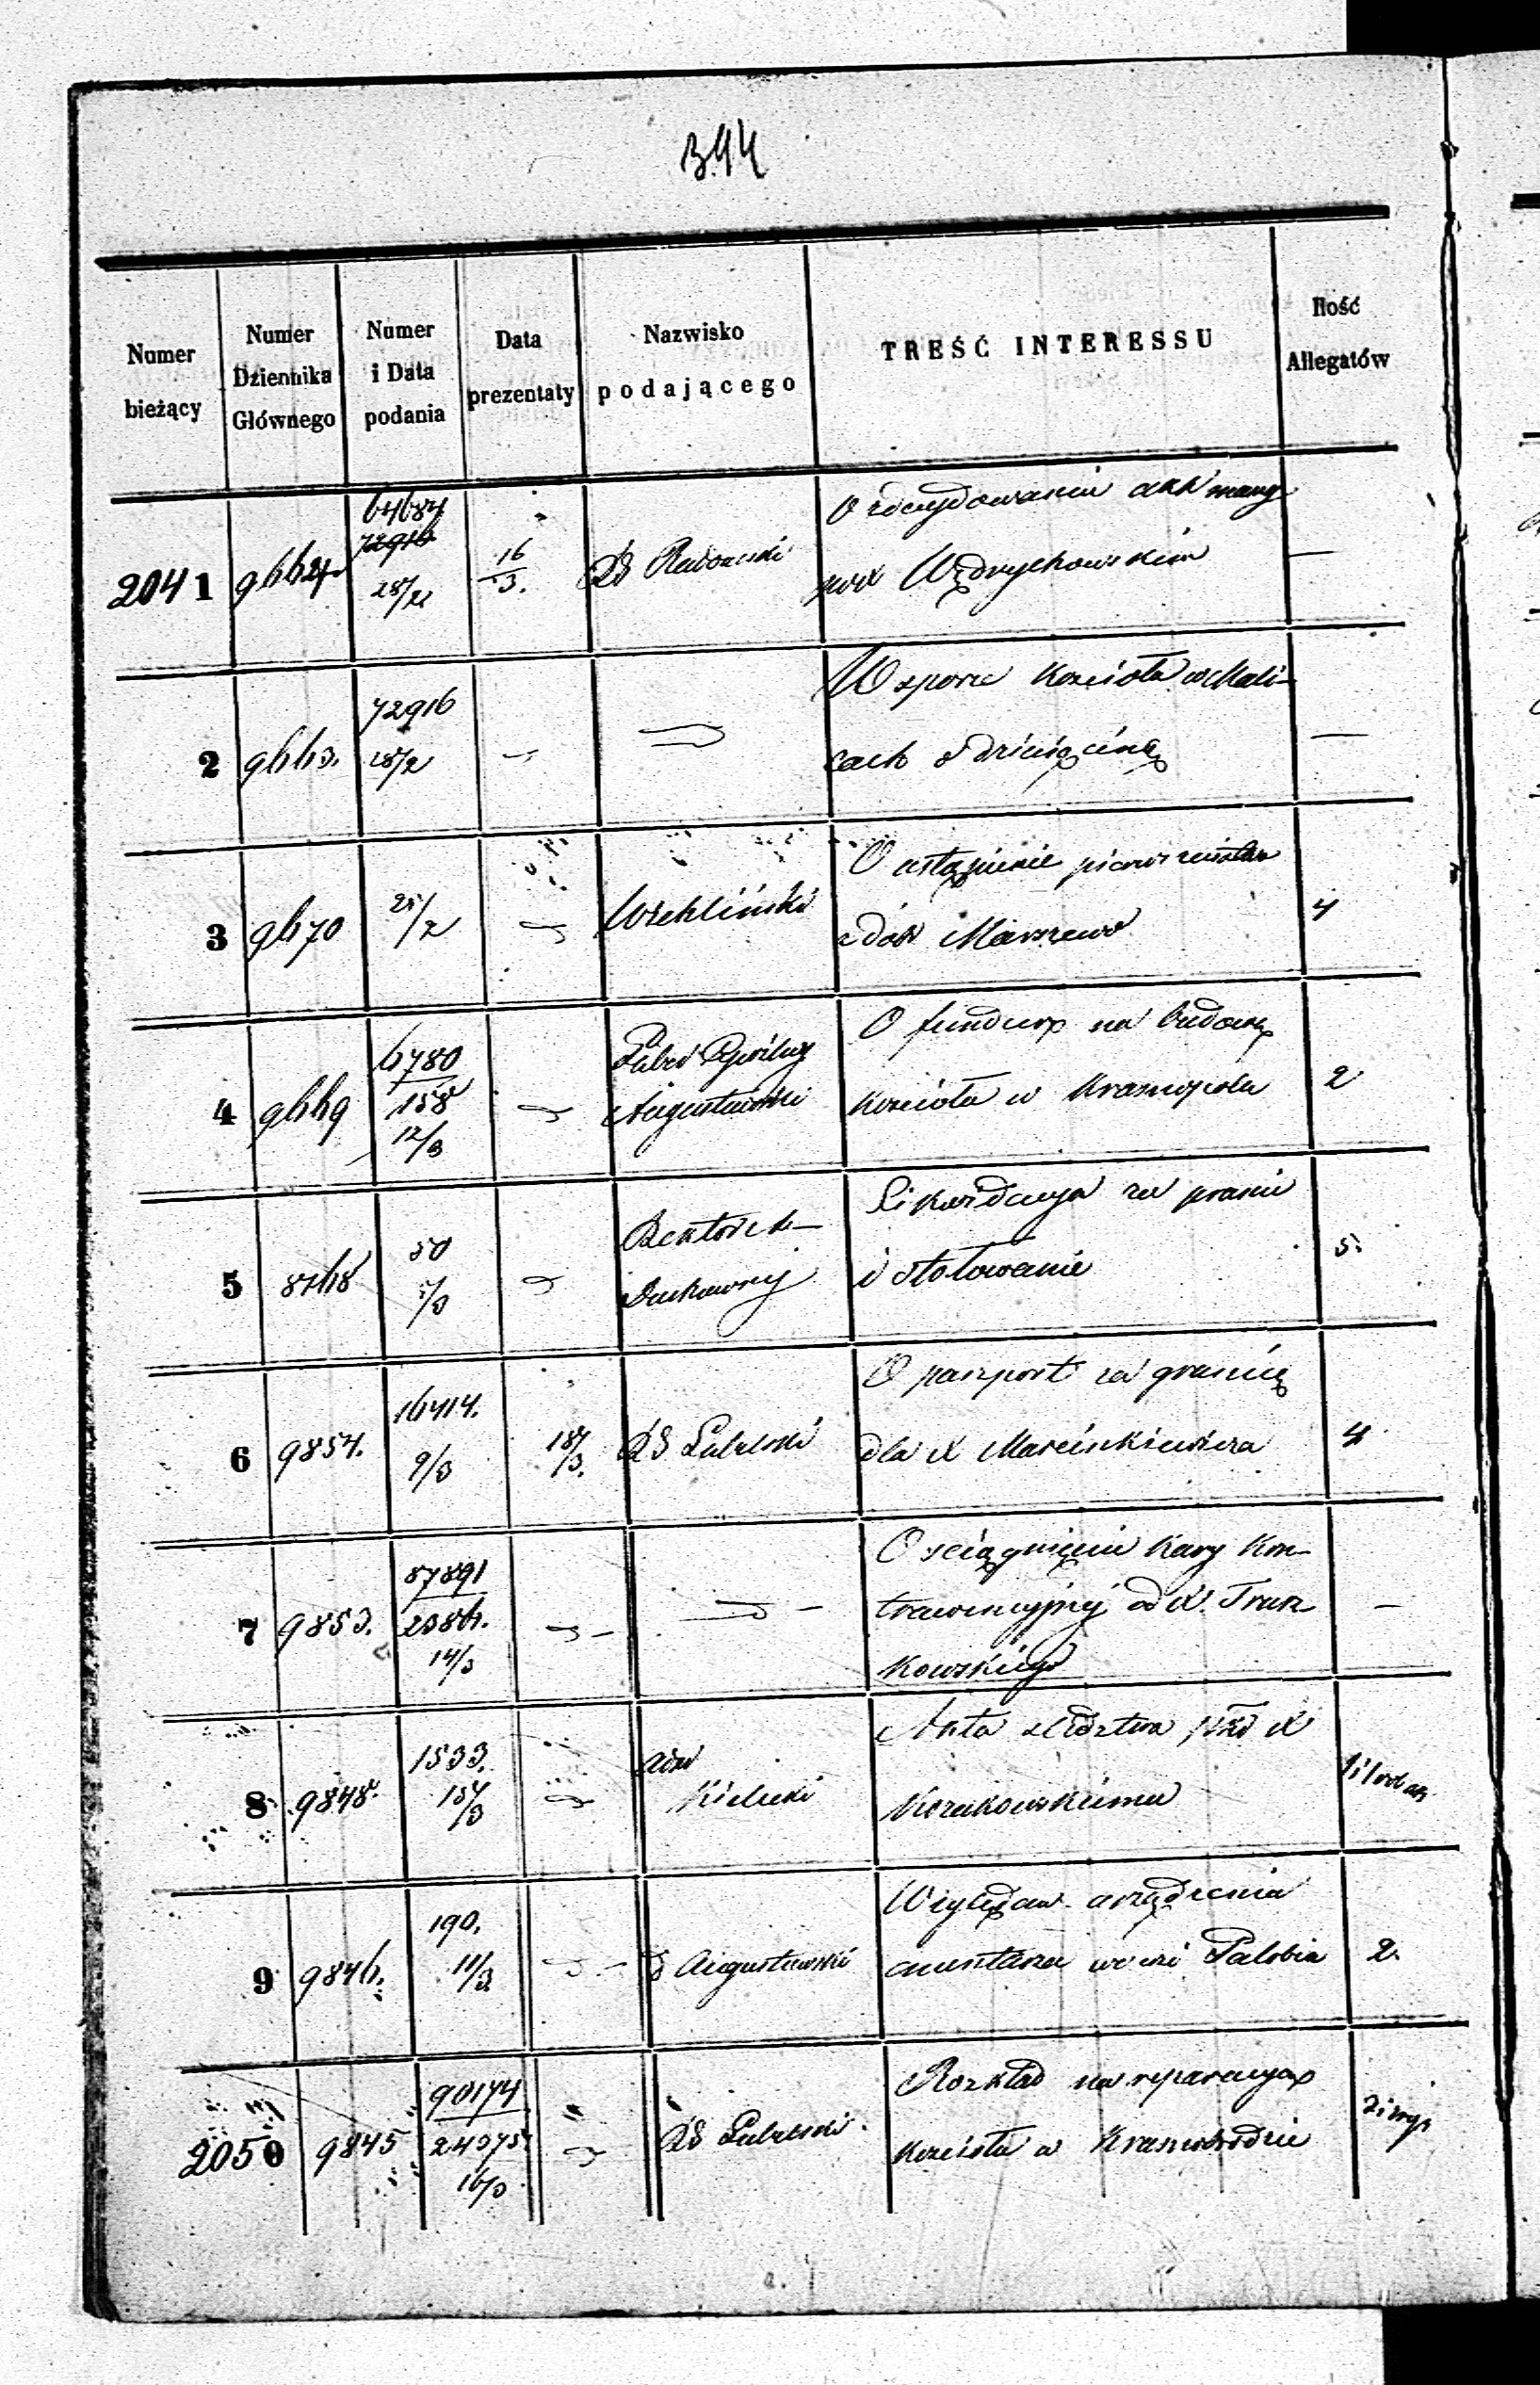 344
Numer bieżący
Numer Dziennika Głównego
Numer i Data podania
Data prezentaty
Nazwisko podającego
TREŚĆ INTERESSU
Ilość Allegatów
2041 9662 64684 72916 28/2 16/3. RG Radomski O zdecydowanie
Wędrychowskim —
2 9663. 72916 28/2 W sporze Kościoła
cach o dziesięcinę —
3 9670 25/2 O ustąpienie pierwszeństwa
z dóbr Marszewo 4
4 9669 6780 158 12/3 Augustowski O fundusz na budowę
Kościoła w Krasnopolu 2
5 8768 50 5/3 Rektor
Duchowny Likwidacya za pranie
i stołowanie 5.
6 9854. 16414. 9/3 18/3. RG Lubelski O paszport za granicę
dla X Marcinkiewicza 4
7 9853. 87891 2386. 14/3 O ściągnięcie Kary Kon-
trawencyjnej od X. Trusz-
kowskiego —
8 9848. 1533. 15/3 Kielecki Akta śledztwa X
9 9846. 190. 11/3 Augustowski Względem urządzenia
cmentarza we wsi 2.
2050 9845 90174 24375 16/3 RG Lubelski Rozkład na reparacyą
Kościoła w Krasnobrodzie